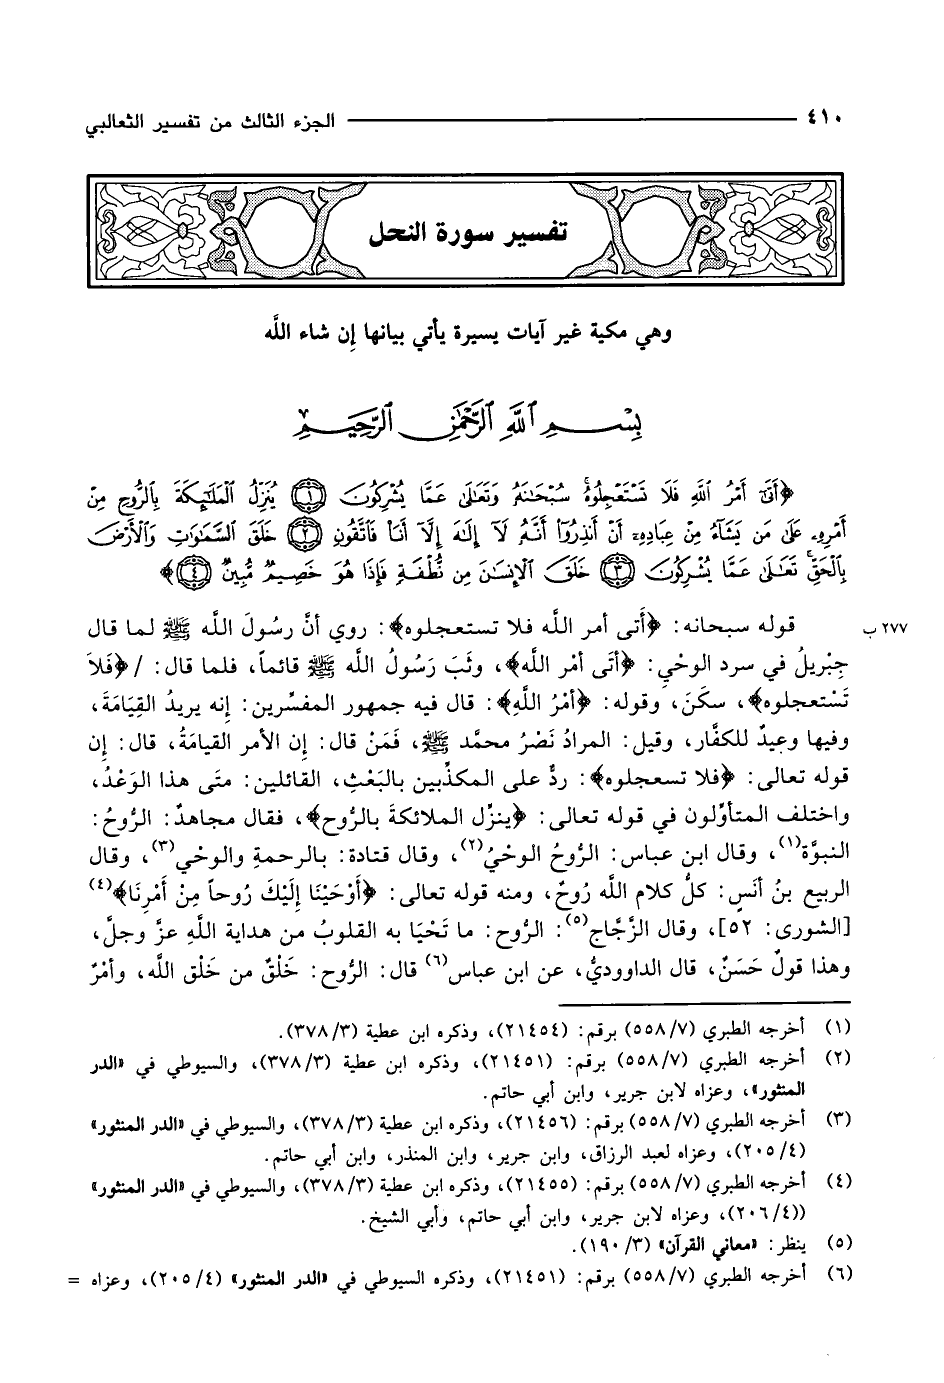 ٤١٠ الجزء الثالث من تفسير الثعالبي
تفسير سورة النحل
وهي مكية غير آيات يسيرة يأتي بيانها إن شاء اللَّه
بِسْمِ ٱللَّهِ ٱلرَّحْمَٰنِ ٱلرَّحِيمِ
﴿أَتَىٰٓ أَمْرُ ٱللَّهِ فَلَا تَسْتَعْجِلُوهُۚ سُبْحَٰنَهُۥ وَتَعَٰلَىٰ عَمَّا يُشْرِكُونَ ﴿١﴾ يُنَزِّلُ ٱلْمَلَٰٓئِكَةَ بِٱلرُّوحِ مِنْ
أَمْرِهِۦ عَلَىٰ مَن يَشَآءُ مِنْ عِبَادِهِۦٓ أَنْ أَنذِرُوٓا۟ أَنَّهُۥ لَآ إِلَٰهَ إِلَّآ أَنَا۠ فَٱتَّقُونِ ﴿٢﴾ خَلَقَ ٱلسَّمَٰوَٰتِ وَٱلْأَرْضَ
بِٱلْحَقِّۚ تَعَٰلَىٰ عَمَّا يُشْرِكُونَ ﴿٣﴾ خَلَقَ ٱلْإِنسَٰنَ مِن نُّطْفَةٍ فَإِذَا هُوَ خَصِيمٌ مُّبِينٌ ﴿٤﴾﴾
قوله سبحانه: ﴿أَتى أمر اللَّه فلا تستعجلوه﴾: روي أنَّ رسُولَ اللَّه ﷺ لما قال ٢٧٧ ب
جِبْرِيلُ في سرد الوحْيِ: ﴿أَتَى أمْر اللَّه﴾، وثَبَ رَسُولُ اللَّه ﷺ قائماً، فلما قال: / ﴿فَلاَ
تَسْتعجلوه﴾، سكَنَ، وقوله: ﴿أمْرُ اللَّهِ﴾: قال فيه جمهور المفسِّرين: إنه يريدُ القِيَامَة،
وفيها وعيدٌ للكفَّار، وقيل: المرادُ نَصْرُ محمَّد ﷺ، فَمَنْ قال: إِن الأمر القيامَةُ، قال: إِن
قوله تعالى: ﴿فلا تسعجلوه﴾: ردٌّ على المكذِّبين بالبَعْثِ، القائلين: متَى هذا الوَعْدُ،
واختلف المتأوِّلون في قوله تعالى: ﴿ينزِّل الملائكةَ بالرُّوح﴾، فقال مجاهدٌ: الرُّوحُ:
النبوَّة(١)، وقال ابن عباس: الرُّوحُ الوحْيُ(٢)، وقال قتادة: بالرحمةِ والوحْيِ(٣)، وقال
الربيع بنُ أنَسٍ: كلُّ كلام اللَّه رُوحٌ، ومنه قوله تعالى: ﴿أَوْحَيْنَا إِلَيْكَ رُوحاً مِنْ أَمْرِنَا﴾(٤)
[الشورى: ٥٢]، وقال الزَّجَّاج(٥): الرُّوح: ما تَحْيَا به القلوبُ من هداية اللَّهِ عزَّ وجلَّ،
وهذا قولٌ حَسَنٌ، قال الداوديُّ، عن ابن عباس(٦) قال: الرُّوح: خَلْقٌ من خَلْق اللَّه، وأمْرٌ
(١) أخرجه الطبري (٧/ ٥٥٨) برقم: (٢١٤٥٤)، وذكره ابن عطية (٣/ ٣٧٨).
(٢) أخرجه الطبري (٧/ ٥٥٨) برقم: (٢١٤٥١)، وذكره ابن عطية (٣/ ٣٧٨)، والسيوطي في «الدر
المنثور»، وعزاه لابن جرير، وابن أبي حاتم.
(٣) أخرجه الطبري (٧/ ٥٥٨) برقم: (٢١٤٥٦)، وذكره ابن عطية (٣/ ٣٧٨)، والسيوطي في «الدر المنثور»
(٤/ ٢٠٥)، وعزاه لعبد الرزاق، وابن جرير، وابن المنذر، وابن أبي حاتم.
(٤) أخرجه الطبري (٧/ ٥٥٨) برقم: (٢١٤٥٥)، وذكره ابن عطية (٣/ ٣٧٨)، والسيوطي في «الدر المنثور»
((٤/ ٢٠٦)، وعزاه لابن جرير، وابن أبي حاتم، وأبي الشيخ.
(٥) ينظر: «معاني القرآن» (٣/ ١٩٠).
(٦) أخرجه الطبري (٧/ ٥٥٨) برقم: (٢١٤٥١)، وذكره السيوطي في «الدر المنثور» (٤/ ٢٠٥)، وعزاه =